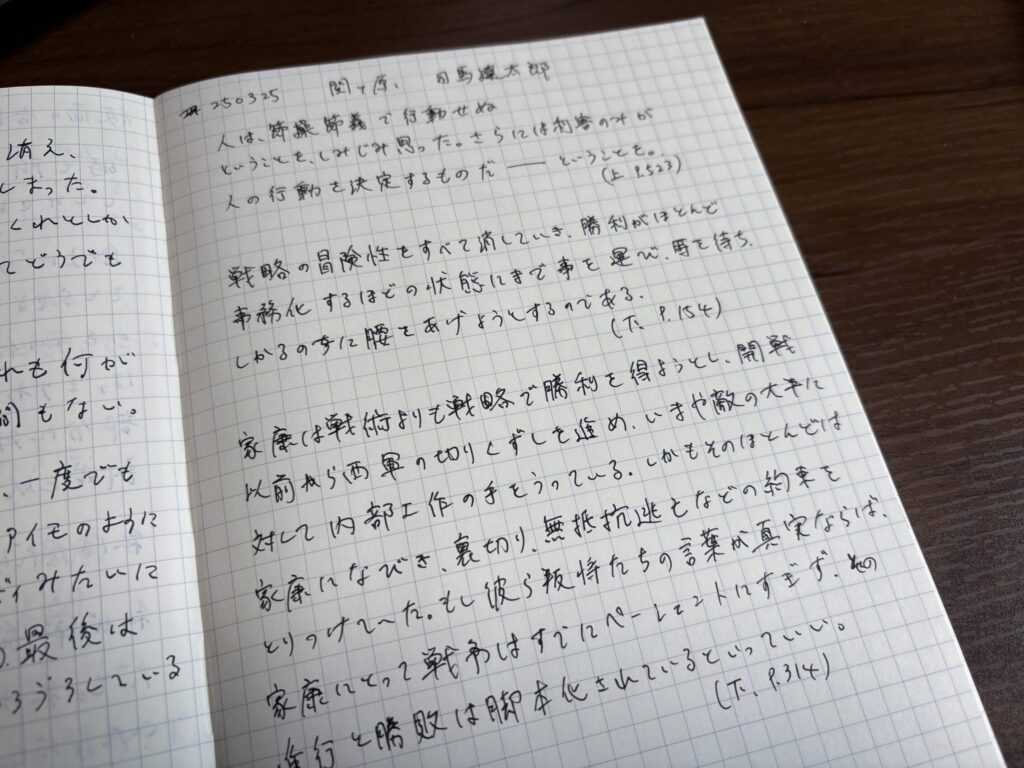 抗え、
しまった。
くれとしか
てどうでも
れも何が
もない。
、一度でも
アイモのように
ディみたいに
最後は
うろうろしている
250325 関ヶ原、司馬遼太郎
人は、節操節義で行動せぬ
ということを、しみじみ思った。さらには利害のみが
人の行動を決定するものだ ── ということを。
(上 P.523)
戦略の冒険性をすべて消していき、勝利がほとんど
事務化するほどの状態にまで事を運び、馬を待ち、
しかるのちに腰をあげようとするのである。
(下、P.154)
家康は戦術よりも戦略で勝利を得ようとし、開戦
以前から西軍の切りくずしを進め、いまや敵の大半に
対して内部工作の手をうっている。しかもそのほとんどは
家康になびき、裏切り、無抵抗逃亡などの約束を
とりつけていた。もし彼ら叛将たちの言葉が真実ならば、
家康にとって戦争はすでにページェントにすぎず、その
進行と勝敗は脚本化されているといっていい。
(下、P.314)